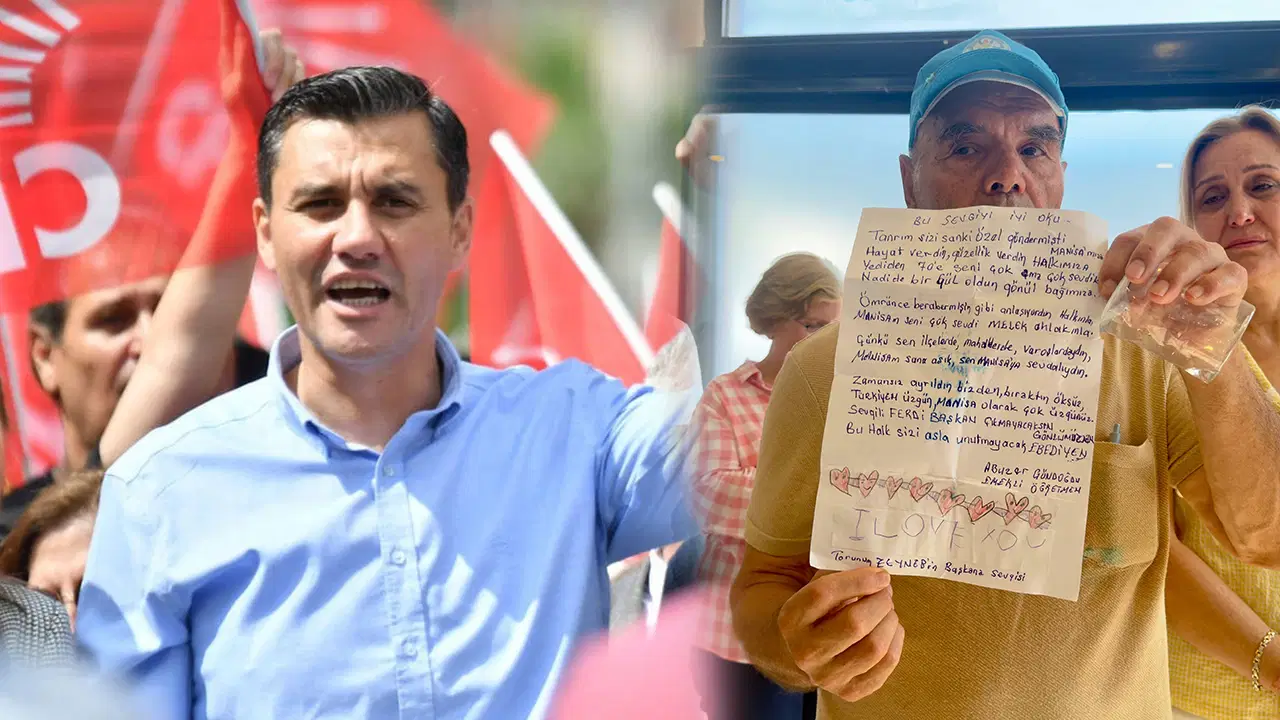 C
BU SEVGİYİ İYİ OKU -
Tanrım sizi sanki özel göndermişti
Hayat verdin, güzellik verdin HALKIMIZA
Yediden 70'e seni çok ama çok sevdik
Nadide bir GÜL oldun gönül bağımıza.
Ömrünce berabermişin gibi anlaşıyordun Halkımla
MANİSAN seni çok sevdi MELEK ahlakınla
Günkü sen ilçelerde, mahallerde, varoşlardaydın,
MANİSAN sana aşık, sen MANİSAYA sevdalıydın.
Zamansız ayrıldın bizden, bıraktın öksüz,
TÜRKİYEM üzgün, MANİSA olarak çok üzgünüz.
Sevgili FERDİ BAŞKAN ÇIKMAYACAKSIN GÖNLÜMÜZDEN
Bu Halk sizi asla unutmayacak, EBEDİYEN
Abuzer GÜNDOĞDU
EMEKLİ ÖĞRETMEN
I LOVE YOU
Torunum ZEYNEB'in Başkana Sevgisi